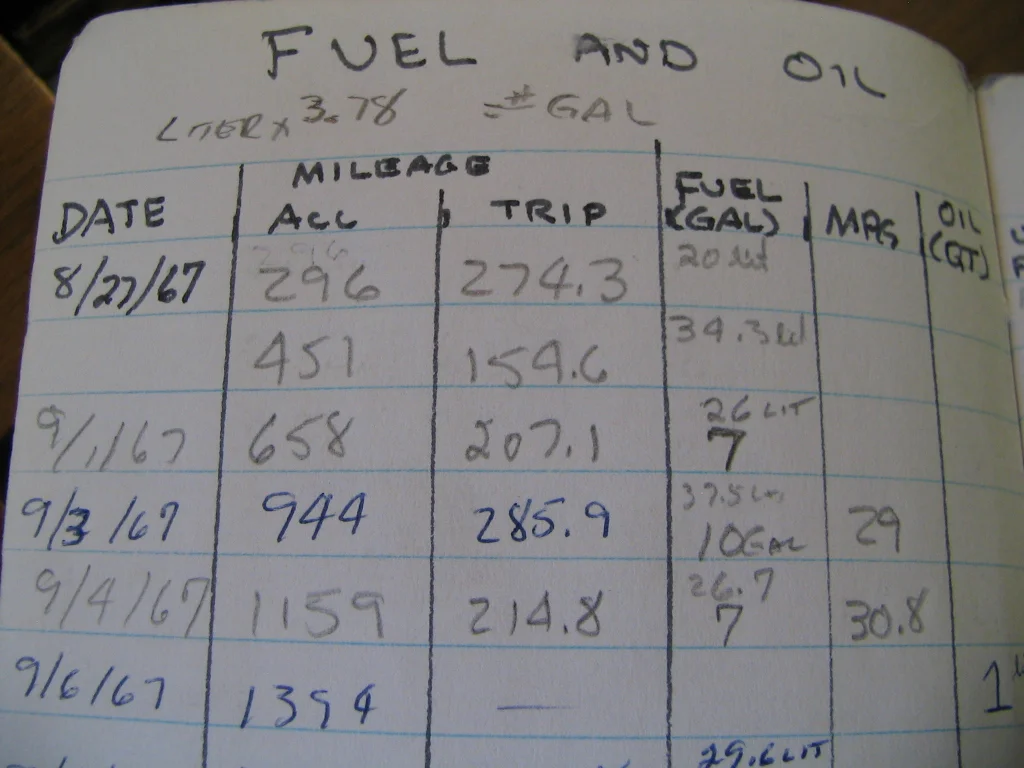 FUEL AND OIL
LITER x 3.78 = # GAL
MILEAGE
DATE ACC TRIP FUEL (GAL) MPG OIL (QT)
20 Lit
8/27/67 296 274.3
34.3 Lit
451 154.6
26 LIT
9/1/67 658 207.1 7
37.5 Lit
9/3/67 944 285.9 10 GAL 29
26.7
9/4/67 1159 214.8 7 30.8
9/6/67 1394 — 1
29.6 LIT